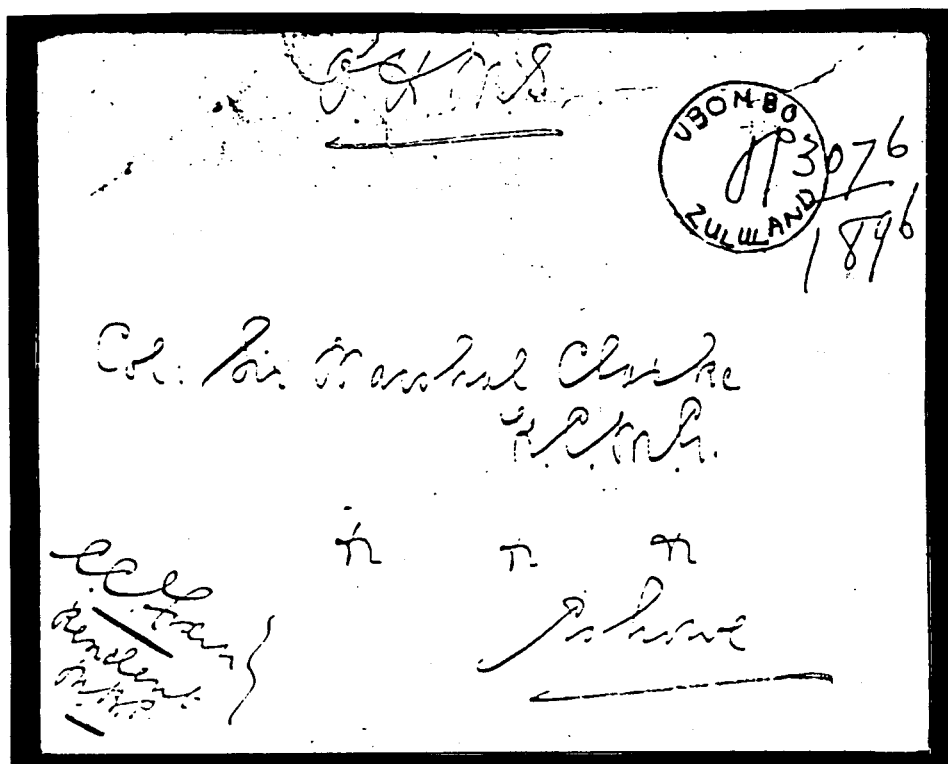 O.H.M.S
UBOMBO
ZULULAND
30 7 6
1896
Col: Sir Marshal Clarke
K.C.M.G.
Eshowe
Resident